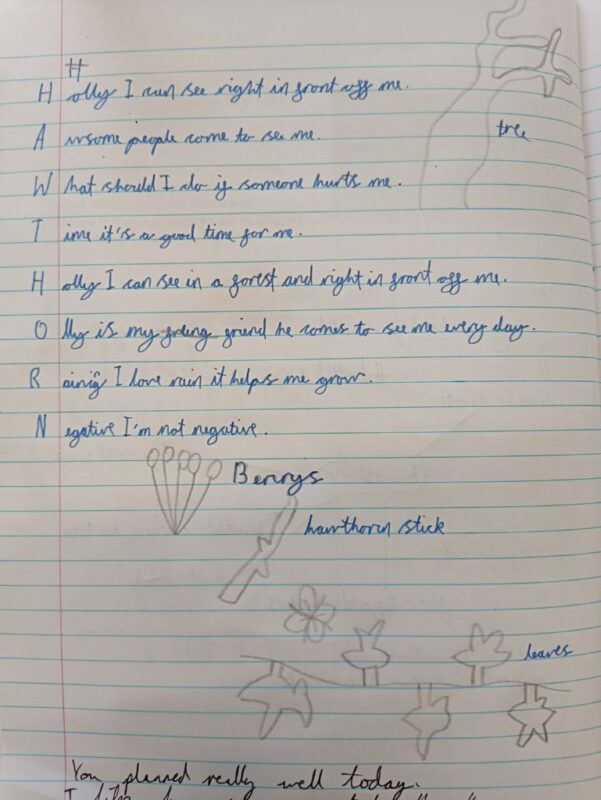 H
Holly I can see right in front off me.
Awsome people come to see me.
tree
What should I do if someone hurts me.
Time it's a good time for me.
Holly I can see in a forest and right in front off me.
Olly is my friend he comes to see me every day.
Rainig I love rain it helps me grow.
Negative I'm not negative.
Berrys
hawthorn stick
leaves
You planned really well today.